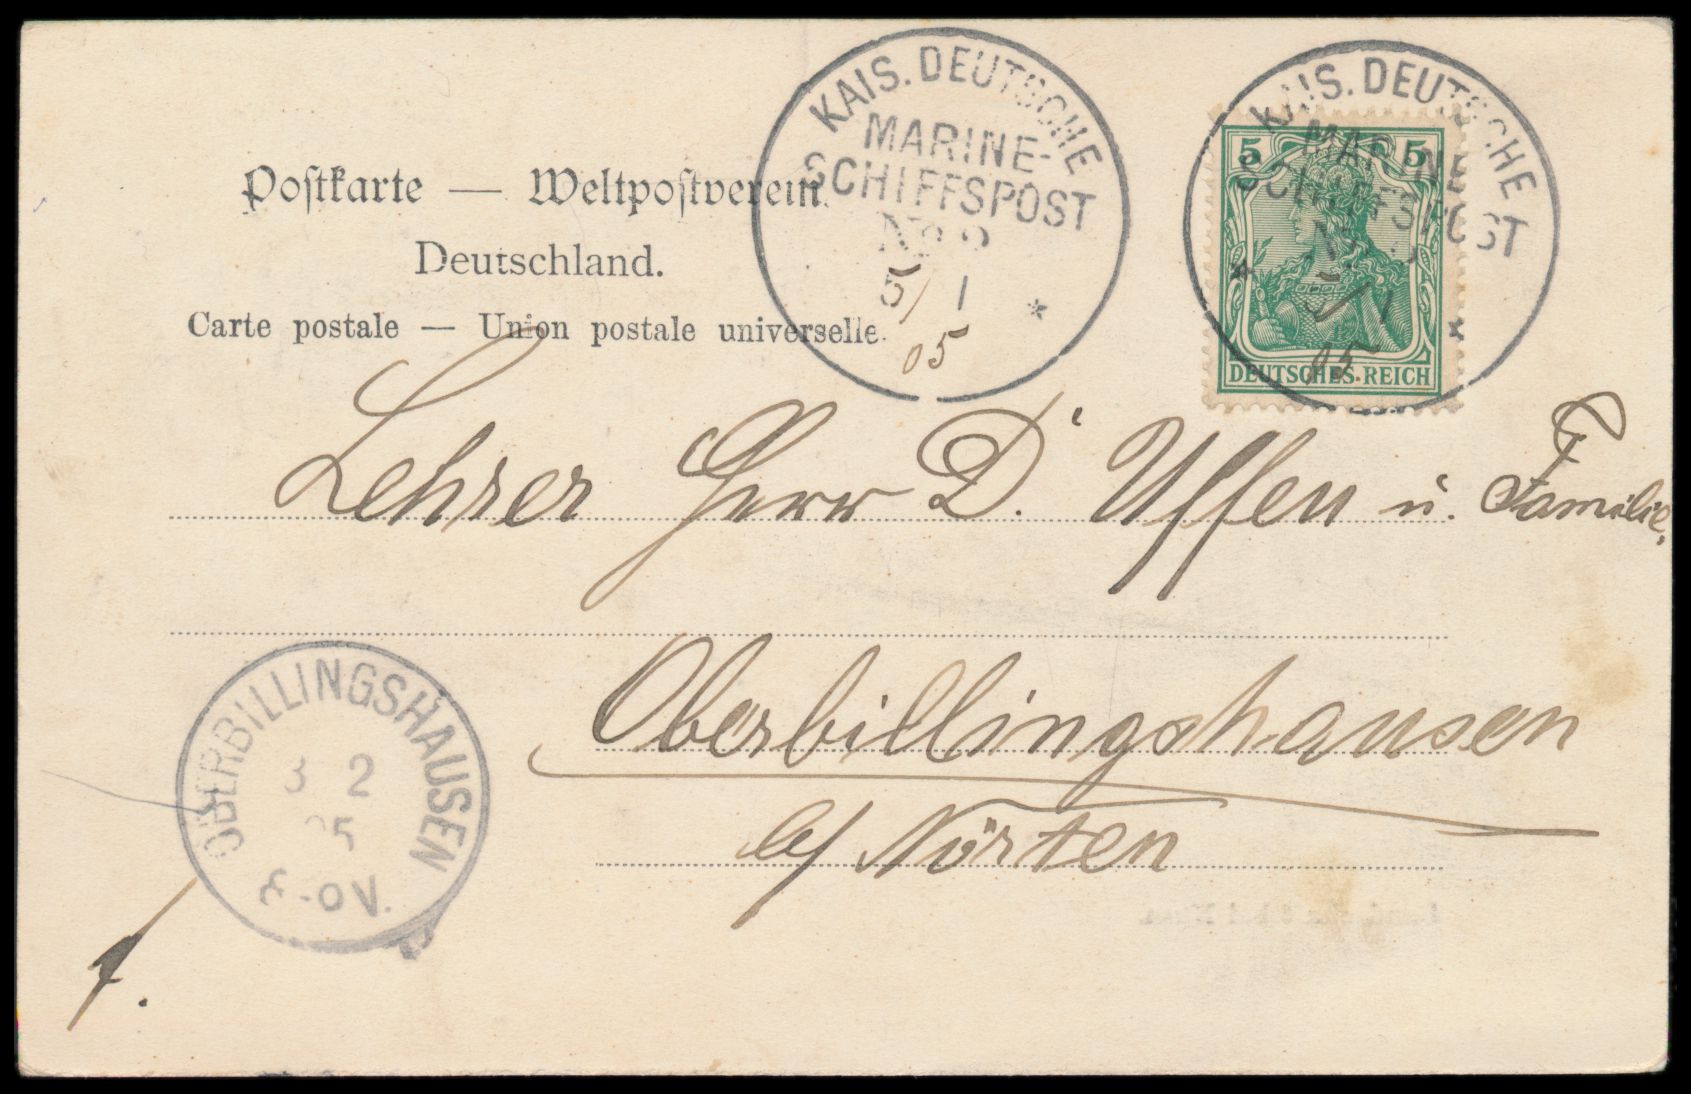 Postkarte — Weltpostverein
Deutschland.
Carte postale — Union postale universelle.
KAIS. DEUTSCHE
MARINE-
SCHIFFSPOST
No
5/1
05
KAIS. DEUTSCHE
MARINE
SCHIFFSPOST
5/1
05.
5 5
DEUTSCHES REICH
Lehrer Herr D. Uffen u. Familie.
Oberbillingshausen
b/ Nörten
OBERBILLINGSHAUSEN
3 2
05
8-9V.
1.